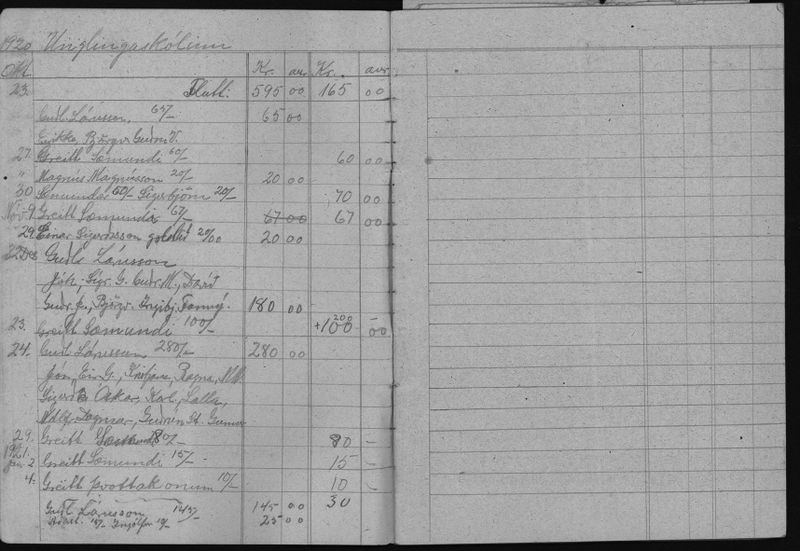 1920 Unglingaskólinn
Okt. Kr. aur Kr. aur
23. Flutt: 595 00 165 00
Guðl. Lárusson, 65/- 65 00
Guðrún V.
27. Greitt Sæmundi 60/- 60 00
" Magnús Magnússon 20/- 20 00
30 Sæmundar 50/- Sigurbjörn 20/- 70 00
Nóv 9 Greitt Sæmundi 67/- 67 00 67 00
29 Einar Sigurðsson goldið 20/00 20 00
22 Des Guðl. Lárusson
Jóh., Sigr. G. Guðr. M., Davíð
Guðr. Þ., Björgv. Ingibj. Fanný. 180 00
23. Greitt Sæmundi 100/- 200 -
+100 00
24. Guðl. Lárusson 280/- 280 00
Jón, Kristjana, Ragna, M.M.
Óskar, Karl, Lalla,
Dagmar, Guðrún St. Gunnar
29. Greitt 80/- 80 -
1921. Jan. 2 Greitt Sæmundi 15/- 15 -
4. Greitt þvottakonum 10/- 10 -
Guðl. Lárusson 145/- 145 00 30
Ingólfur 25 00